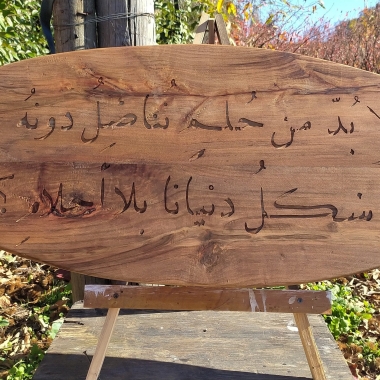 بُدّ مِنْ حُلمٍ نُناضلُ دونَهُ
شكلُ دُنيانا بلا أحلامٍ ؟